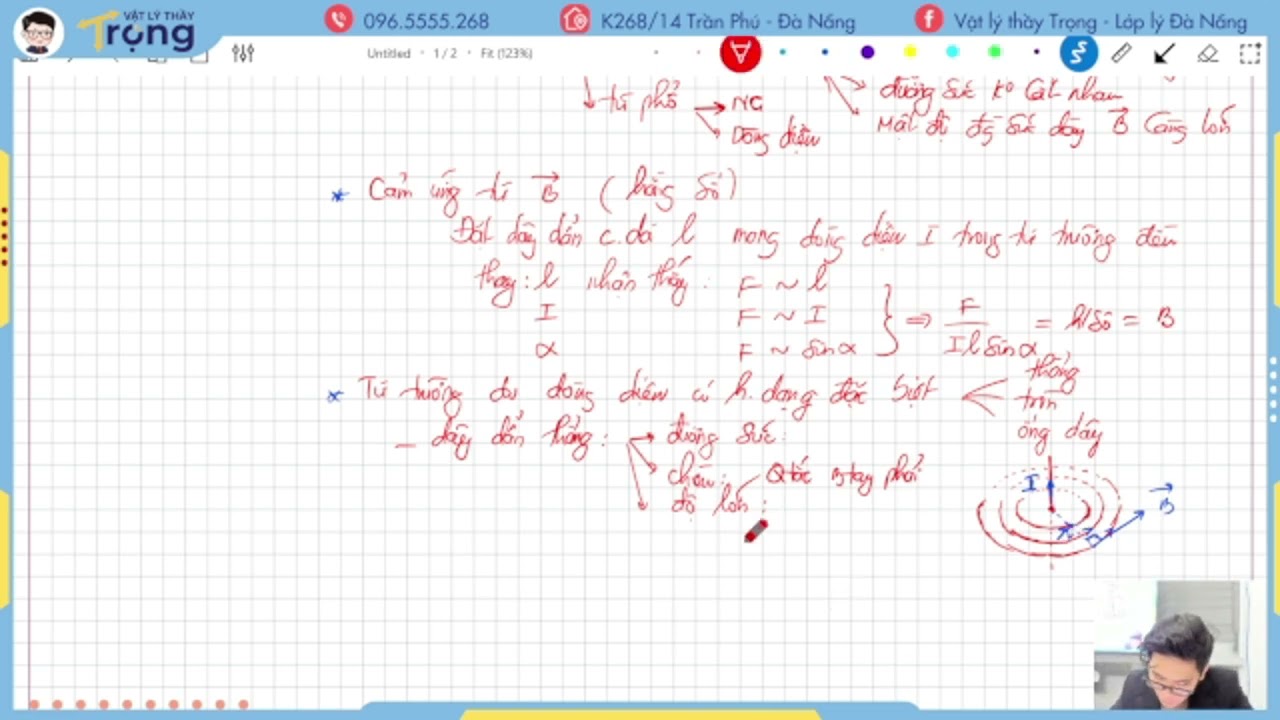 VẬT LÝ THẦY
Trọng
096.5555.268
K268/14 Trần Phú - Đà Nẵng
Vật lý thầy Trọng - Lớp lý Đà Nẵng
Untitled • 1 / 2 • Fit (123%)
từ phổ → NC
Dòng điện
đường sức ko cắt nhau
Mật độ đg sức dày B⃗ Càng lớn
* Cảm ứng từ B⃗ (hằng số)
Đặt dây dẫn c.dài l mang dòng điện I trong từ trường đều
thay: l nhận thấy: F ~ l
I F ~ I
α F ~ sinα
} ⇒ F / Il sinα = h/số = B
* Từ trường do dòng điện có h.dạng đặc biệt
thẳng
tròn
ống dây
– dây dẫn thẳng: → đường sức:
chiều: Qtắc ntay phải
độ lớn:
I
r
B⃗